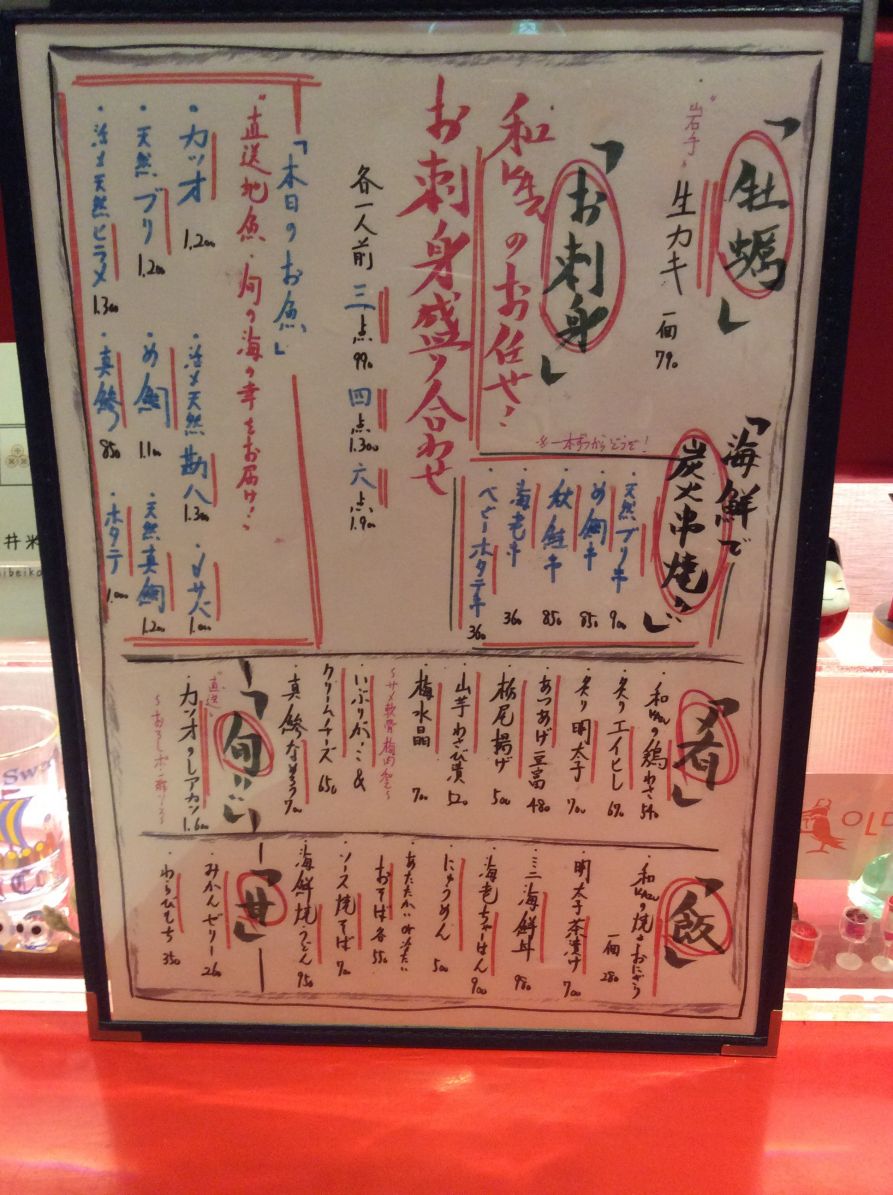 「牡蠣」
"岩手"
生カキ 一個 790
「お刺身」
のお任せ!
お刺身盛り合わせ
各一人前 三点 990 四点 1.300 六点 1.900
「本日のお魚」
"直送地魚・旬の海の幸をお届け!"
・カツオ 1,200
・活〆天然勘八 1.300
・〆サバ 1.000
・天然ブリ 1.200
・め鯛 1.100
・天然真鯛 1.200
・活〆天然ヒラメ 1.300
・真鯵 850
・ホタテ 1.000
「海鮮で
炭火串焼き」
一本ずつからどうぞ!
・天然ブリ串 900
・め鯛串 850
・秋鮭串 850
・海老串 360
・ベビーホタテ串 360
「肴」
の鶏わさ 540
・炙りエイヒレ 690
・炙り明太子 700
・あつあげ豆富 480
・栃尾揚げ 500
・山芋わさび漬 520
・梅水晶 700
〜サメ軟骨梅肉和え〜
・いぶりがっこ&
クリームチーズ 650
・真鯵なめろう 700
「旬」
"直送"
・カツオのレアカツ 1.600
「飯」
の焼きおにぎり
一個 280
・明太子茶漬け 700
・ミニ海鮮丼 980
・海老ちゃーはん 900
・にゅうめん 500
・あたたかいor冷たい
おそば各 550
・ソース焼そば 700
・海鮮焼うどん 950
「甘」
・みかんゼリー 260
・わらびもち 350
井米